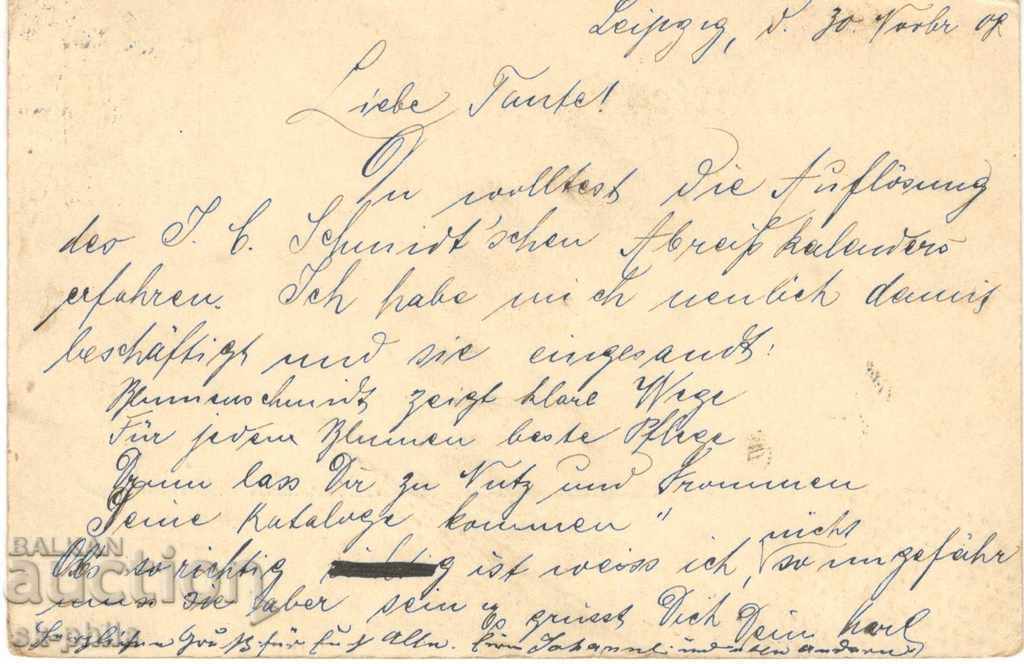 Leipzig, d. 30. Novbr 08
Liebe Tante!
Du wolltest die Auflösung
des J. C. Schmidt'schen Abreißkalenders
erfahren. Ich habe mich neulich damit
beschäftigt und sie eingesandt:
Blumenschmidt zeigt klare Wege
Für jedem Blumen beste Pflege
Drum lass Dir zu Nutz und Frommen
Seine Kataloge kommen"
nicht
Ob's so richtig ist weiss ich, so ungefähr
muss sie aber sein. Es grüsst Dich Dein Karl
Herzlichen Gruß für Euch Alle. Johanna und allen andern
BALKAN
auction